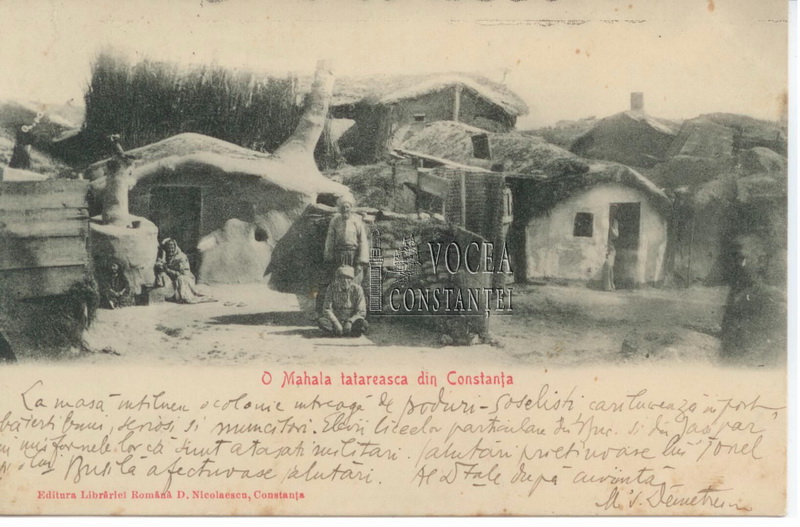 VOCEA
CONSTANȚEI
O Mahala tatareasca din Constanța
La masă intilnim o colonie intreagă de poduri-soseliști cari lucrează in port
băieți buni, seriosi si muncitori. Elevii liceelor particulare din Buc. si din
uniformele lor că sunt atașați militari. salutări prietinoase lui Ionel
Busilă afectuoase salutări. Al Dtale după cuviință
M. S. Demetrescu
Editura Librăriei Română D. Nicolaescu, Constanța